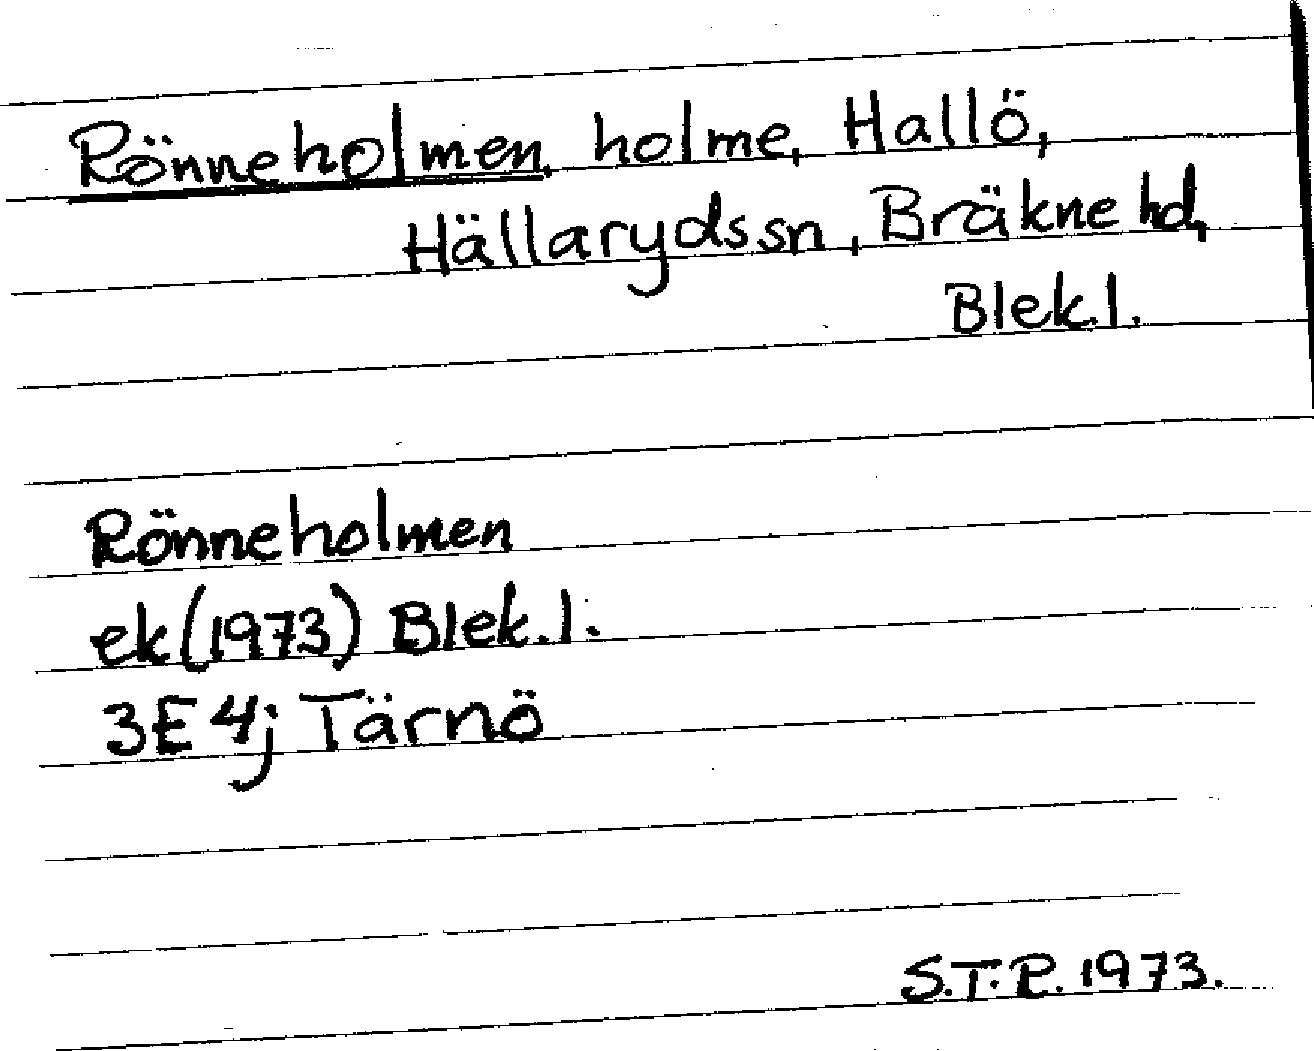 Rönneholmen, holme, Hallö,
Hällaryds sn, Bräkne hd,
Blek.l.
Rönneholmen
ek (1973) Blek.l.
3E 4j Tärnö
S.T.P. 1973.